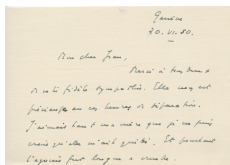 Genève
30.VI.80.
Mon cher Jean,
Merci à tous deux
de votre fidèle sympathie. Elle nous est
précieuse en ces heures de séparation.
J'aimais tant ma mère que je ne puis
croire qu'elle m'ait quitté. Et pourtant
l'agonie fut longue et cruelle.